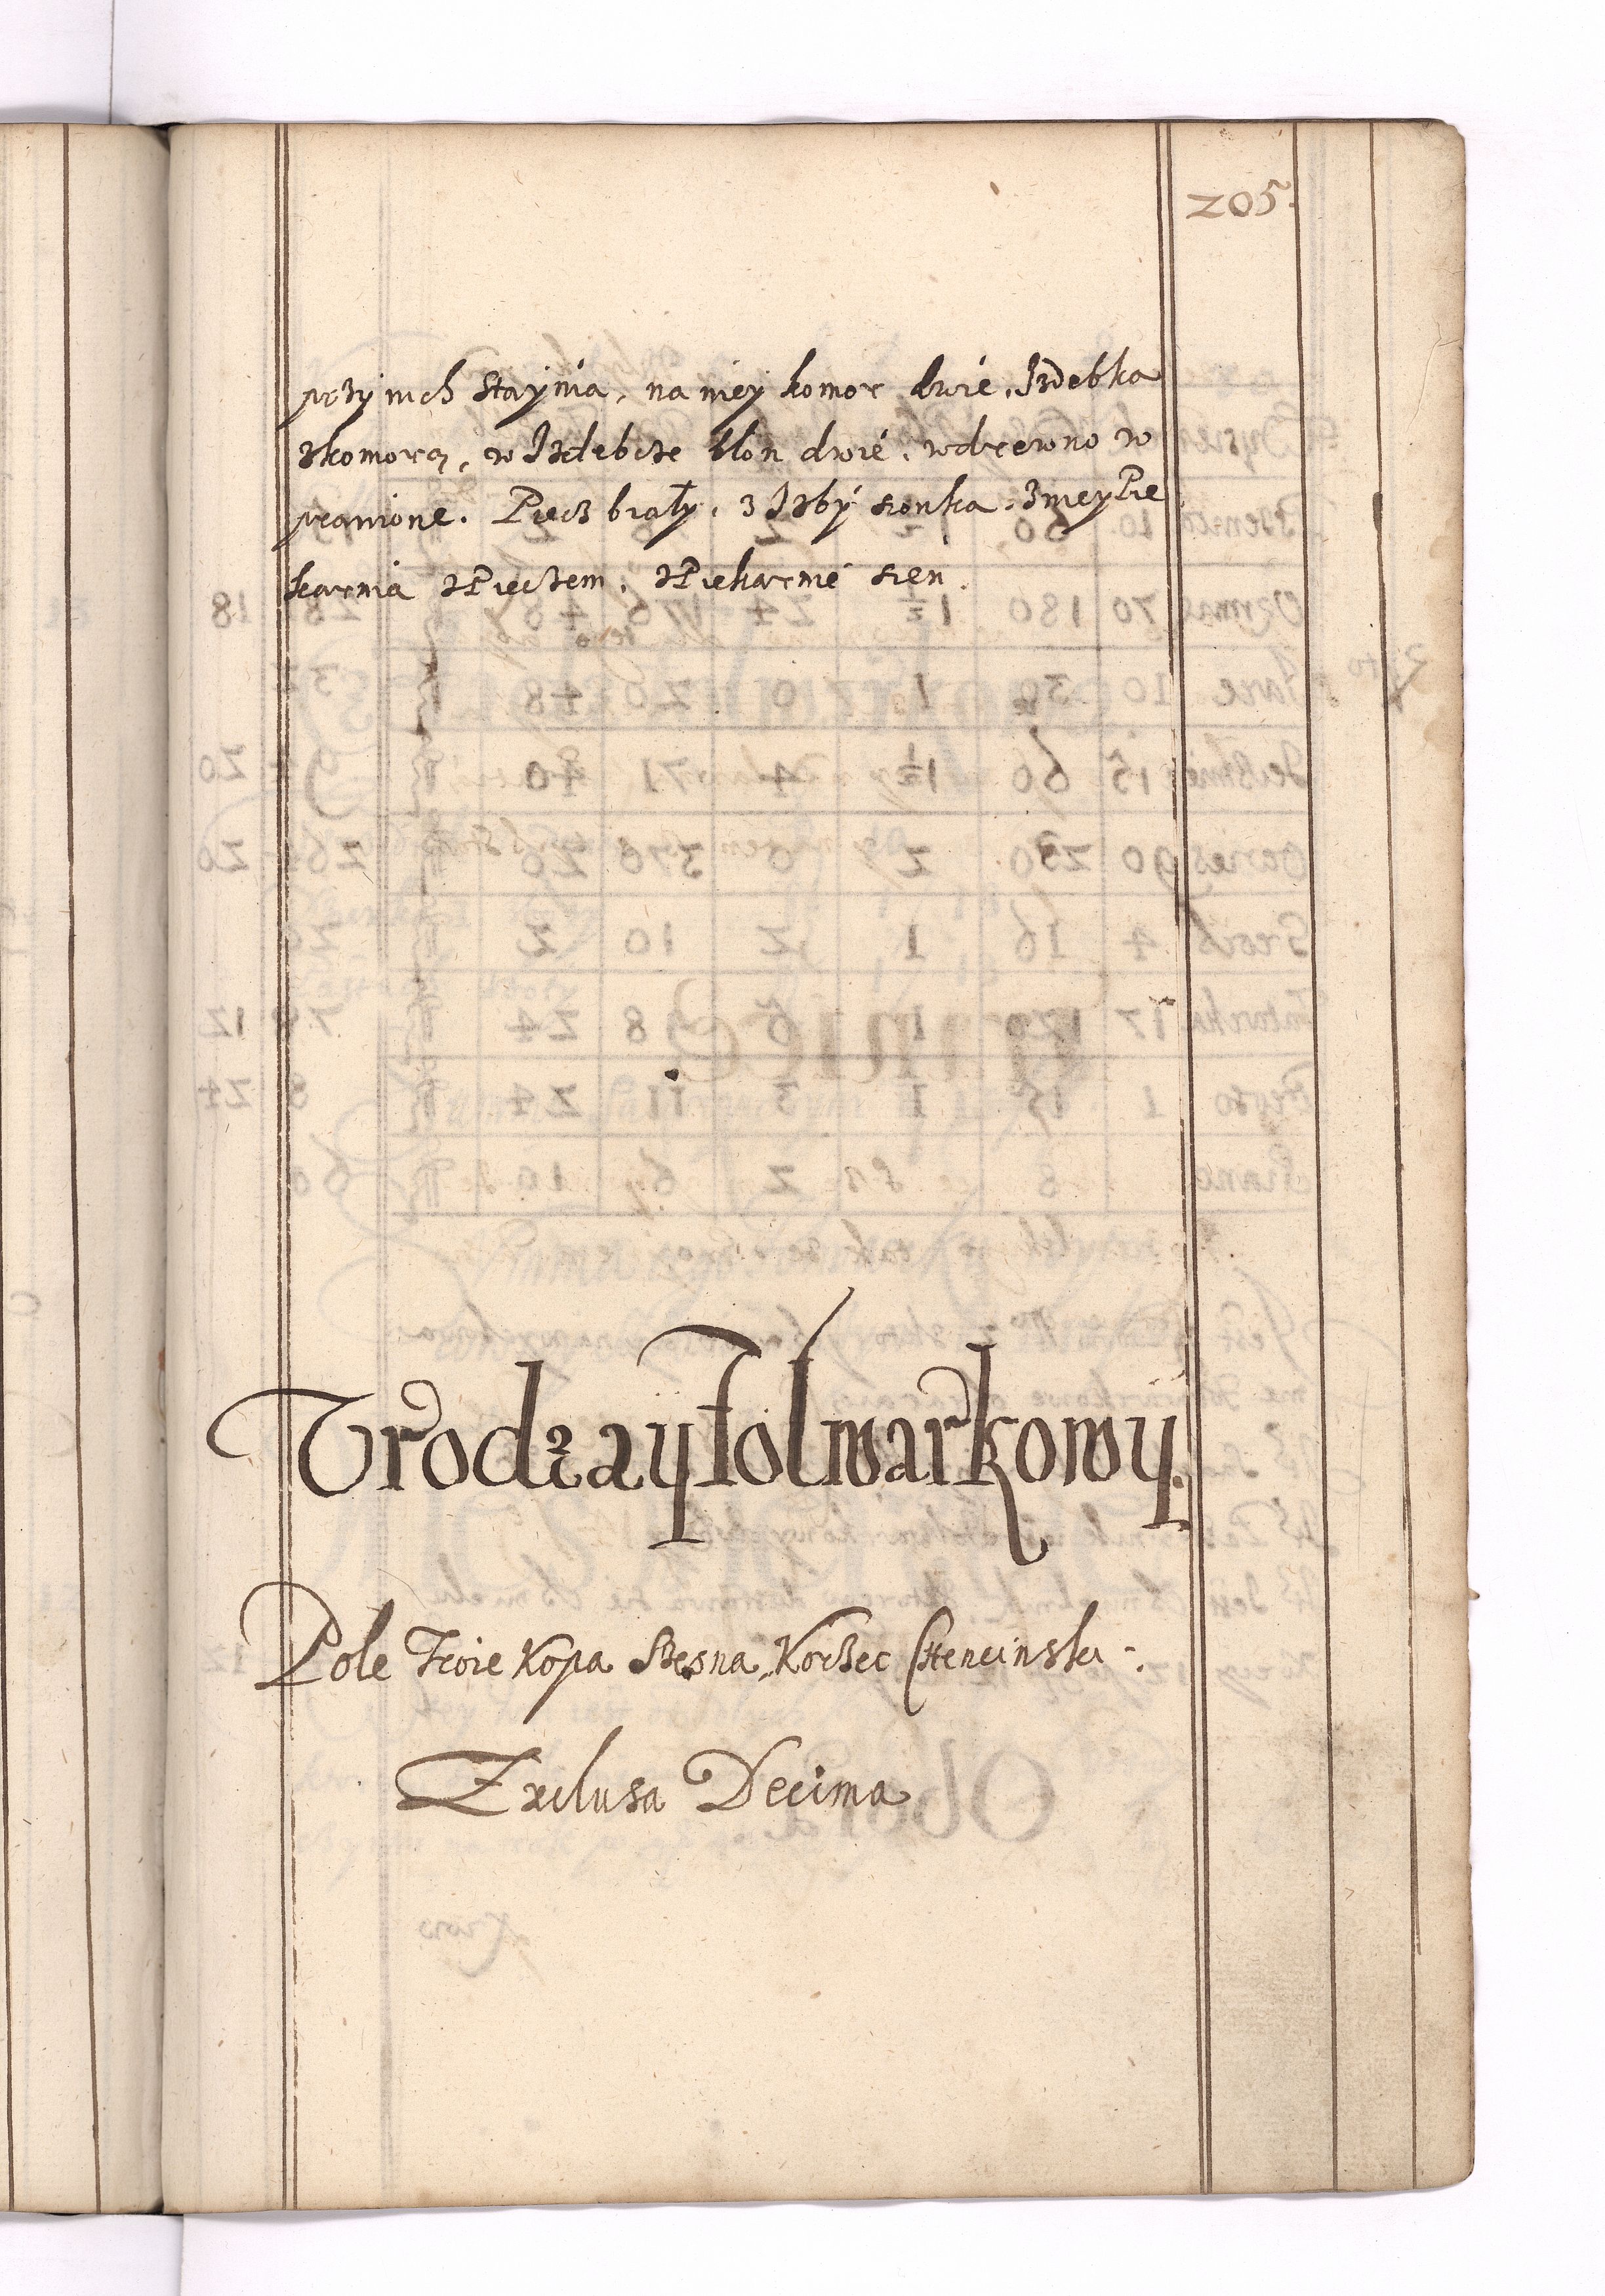 205.
przÿ nich Staÿnia, na nieÿ komor dwie. Izdebka
zkomorą, w Izdebcze błon dwie, wdrewno w
prawione. Piecz biały, z Izbÿ sionka. Znieÿ Pie
karnia z Pieczem, z Piekarnie sień.
Vrodzaÿ folwarkowÿ.
Pole Troie Kopa Szesna, Korzec Chencinski.
Exclusa Decima